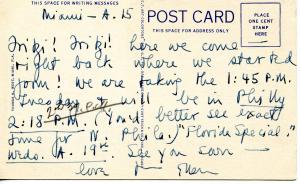 THIS SPACE FOR WRITING MESSAGES
Miami - A. 15
POST CARD
THIS SPACE FOR ADDRESS ONLY
PLACE
ONE CENT
STAMP
HERE
here we come
right back where we started
from! we are taking the 1:45 P.M.
Tuesday
will be in Philly
2:18 P.M. (You'd better see exact
time for N. Phila.) "Florida Special."
Weds. A. 19th. See you soon —
love